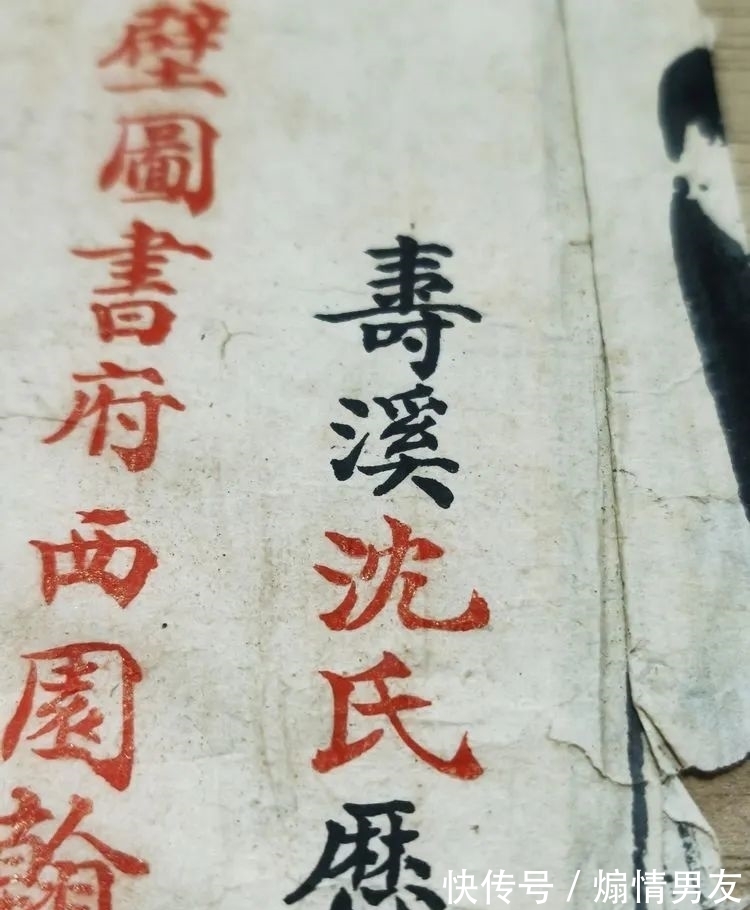 壽溪沈氏
壁圖書府西園翰
快传号 / 煽情男友